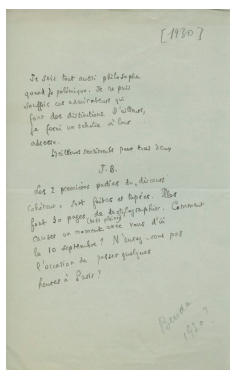 [1930]
Je suis tout aussi philosophe
quand je polémique. Je ne puis
souffrir ces admirateurs qui
font des distinctions d'ailleurs,
je ferai un scholie à leur
adresse.
Meilleurs sentiments pour tous deux
J. B.
Les 2 premières parties du discours
cohérent, sont faites et tapées. Elles
font 30 pages de dactylographie. Comment
(très denses)
causer un moment avec vous d'ici
le 10 septembre ? N'aurez-vous pas
l'occasion de passer quelques
heures à Paris ?
Benda
1930 ?